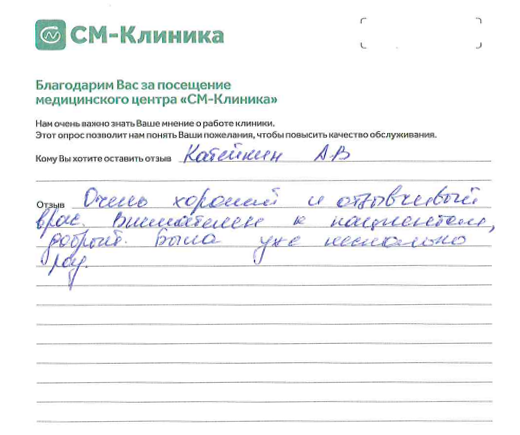 СМ-Клиника
Благодарим Вас за посещение
медицинского центра «СМ-Клиника»
Нам очень важно знать Ваше мнение о работе клиники.
Этот опрос позволит нам понять Ваши пожелания, чтобы повысить качество обслуживания.
Кому Вы хотите оставить отзыв Катейкин А.В
Отзыв Очень хороший и отзывчивый
врач. Внимателен к пациентам,
добрый. Была уже несколько
раз.